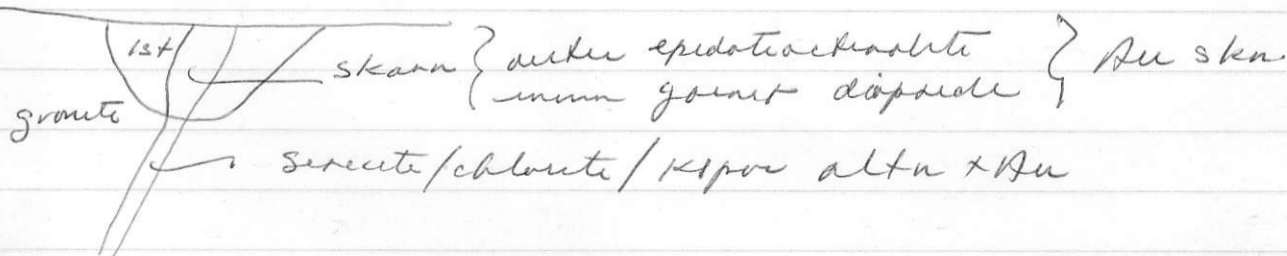 lst
skarn { outer epidote actinolite } Au skn
inner garnet diopside
granite
sericite/chlorite/kspar altn + Au